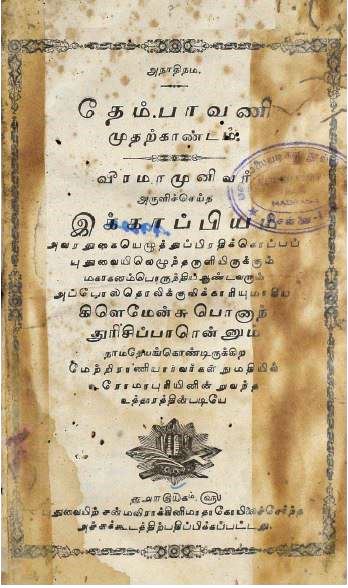 அநாதிநம.
தேம்பாவணி
முதற்காண்டம்.
வீரமாமுனிவர்
அருளிச்செய்த
இக்காப்பியம்
அவரதுகையெழுத்துப்பிரதிக்கொப்பப்
புதுவையிலெழுந்தருளியிருக்கும்
மகாகனம்பொருந்திய துண்டவரும்
அப்போஸ்தொலிக்குவிக்காரியுமாகிய
கிளெமேன்சு பொனாந்
துரிசிப்பாரென்னும்
நாமதேயங்கொண்டிருக்கிற
மேற்றிராணியாரவர்கள் நுமதியில்
உரோமாபுரியினின்றுவந்த
உத்தாரத்தின்படியே
புதுவையிற் சன்மவிராக்கினிமாதாகோயிலைச்சேர்ந்த
அச்சுக்கூடத்திற்பதிப்பிக்கப்பட்டது.
MADRAS